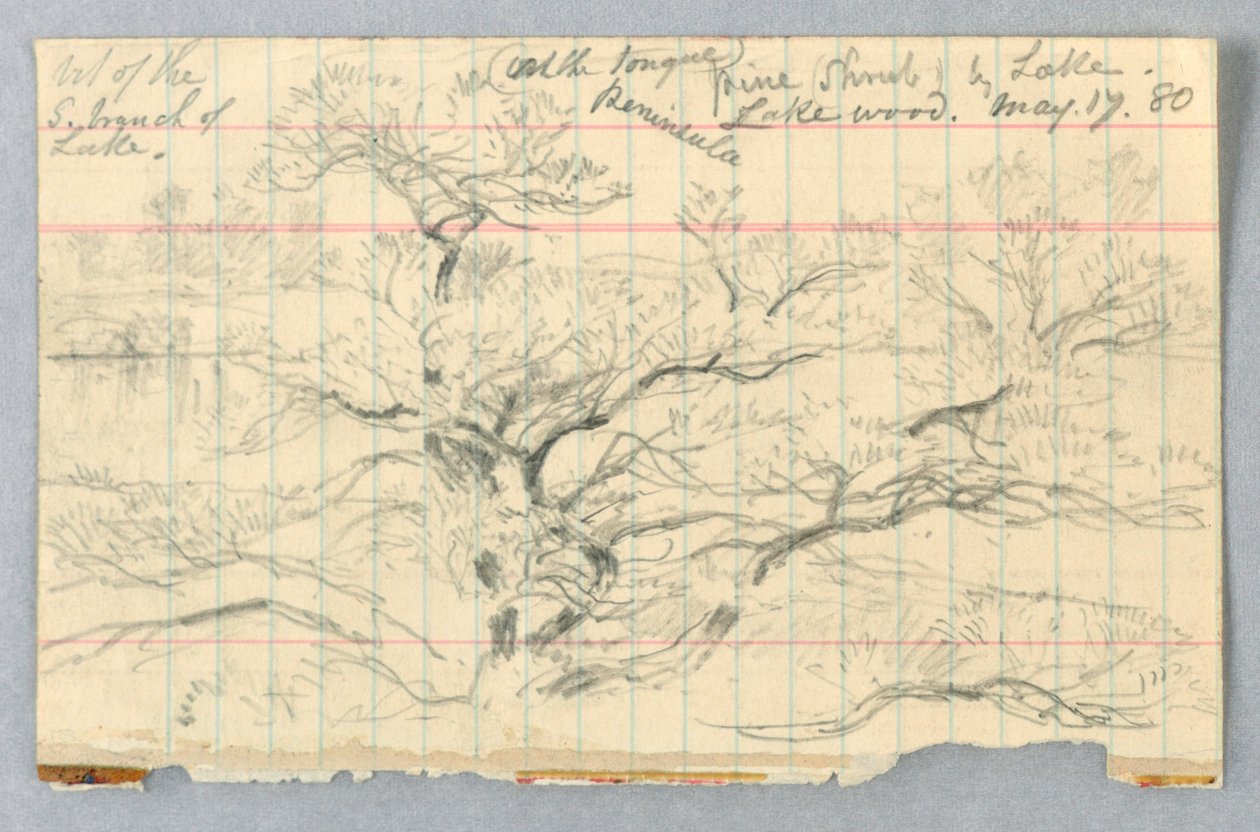 bit of the
S. branch of
Lake.
(at the tongue)
Peninsula
pine (Shrub) by Lake.
Lake wood. May. 17. 80